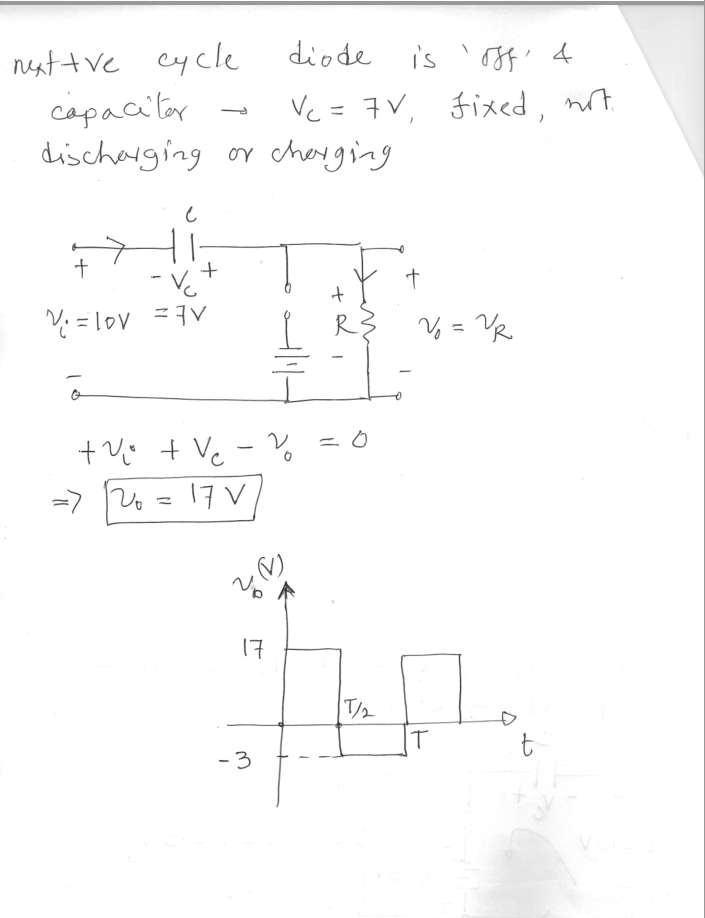 next +ve cycle diode is 'off' &
capacitor → Vc = 7V, fixed, not
discharging or charging
C
+ - Vc + + +
vi = 10V = 7V R vo = vR
- - -
+vi + Vc - vo = 0
=> vo = 17V
vo (V)
17
T/2
T
t
-3